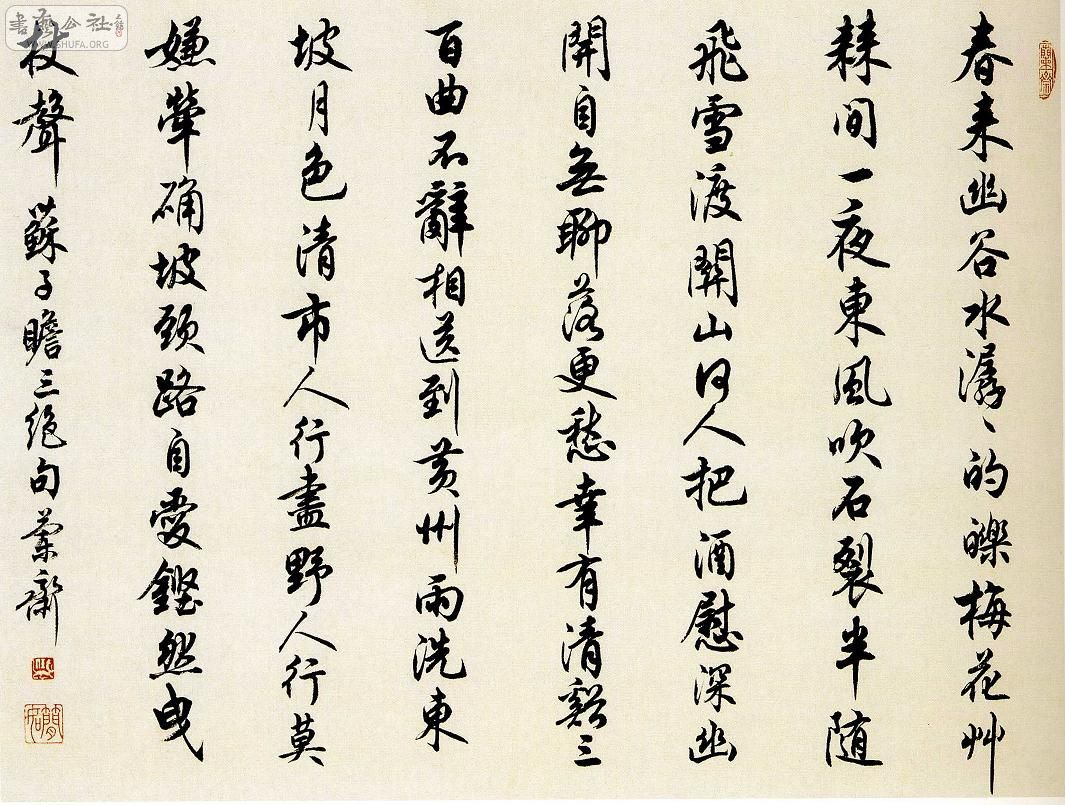 春来幽谷水潺〻的皪梅花艸
棘間一夜東風吹石裂半随
飛雪渡關山何人把酒慰深幽
開自無聊落更愁幸有清谿三
百曲不辭相送到黄州雨洗東
坡月色清市人行盡野人行莫
嫌犖确坡頭路自愛鏗然曳
杖聲 蘇子瞻三絶句 蘭齋
書藝公社
WWW.SHUFA.ORG